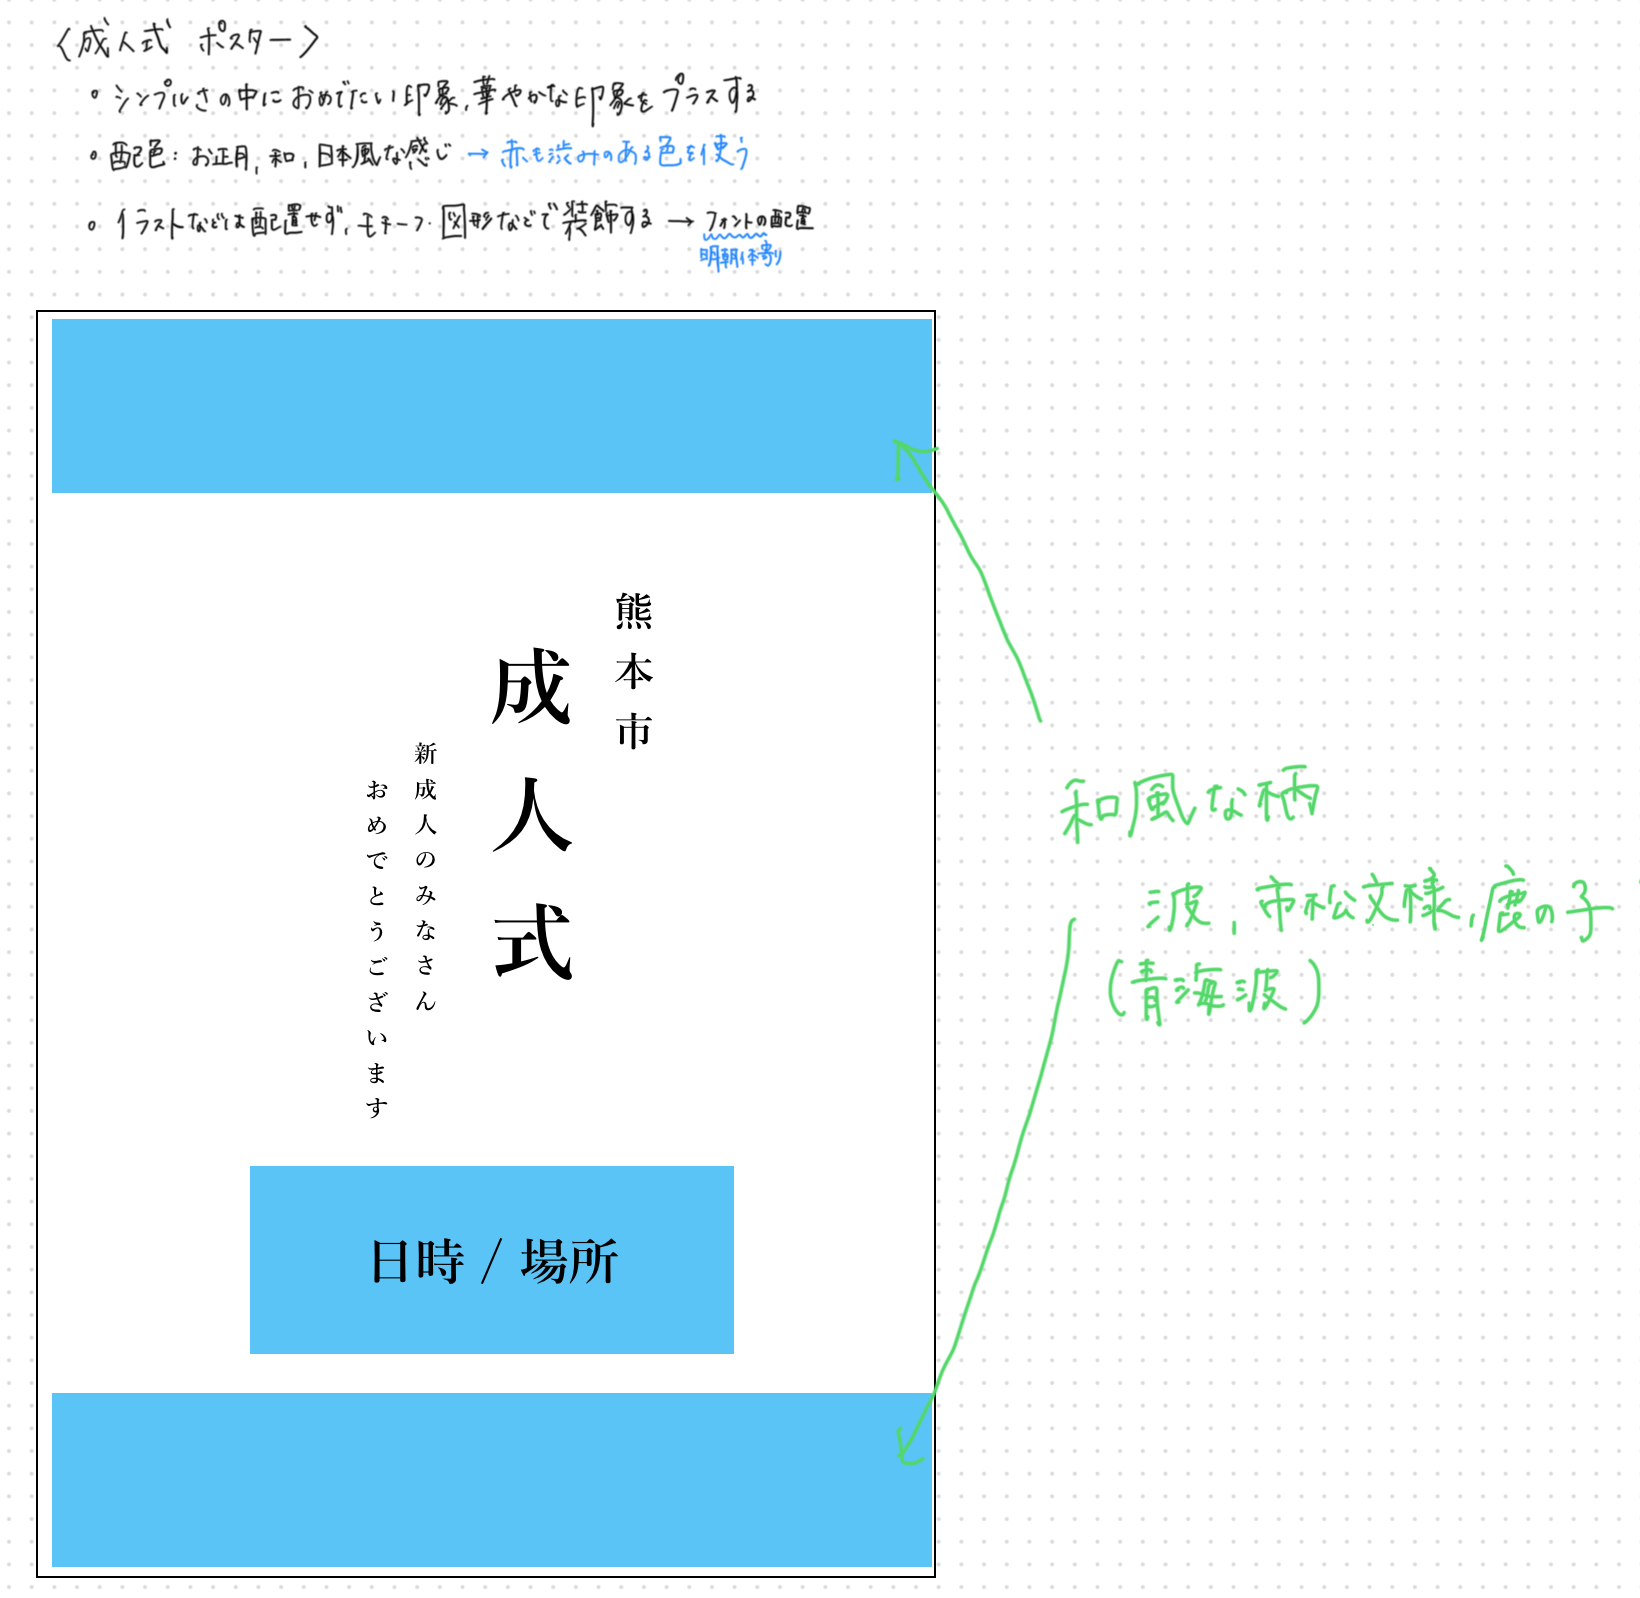 〈成人式 ポスター〉
。シンプルさの中におめでたい印象,華やかな印象をプラスする
。配色：お正月,和,日本風な感じ → 赤も渋みのある色を使う
。イラストなどは配置せず,モチーフ・図形などで装飾する → フォントの配置
明朝体寄り
熊本市
成人式
新成人のみなさん
おめでとうございます
日時 / 場所
和風な柄
波,市松文様,鹿の子
(青海波)